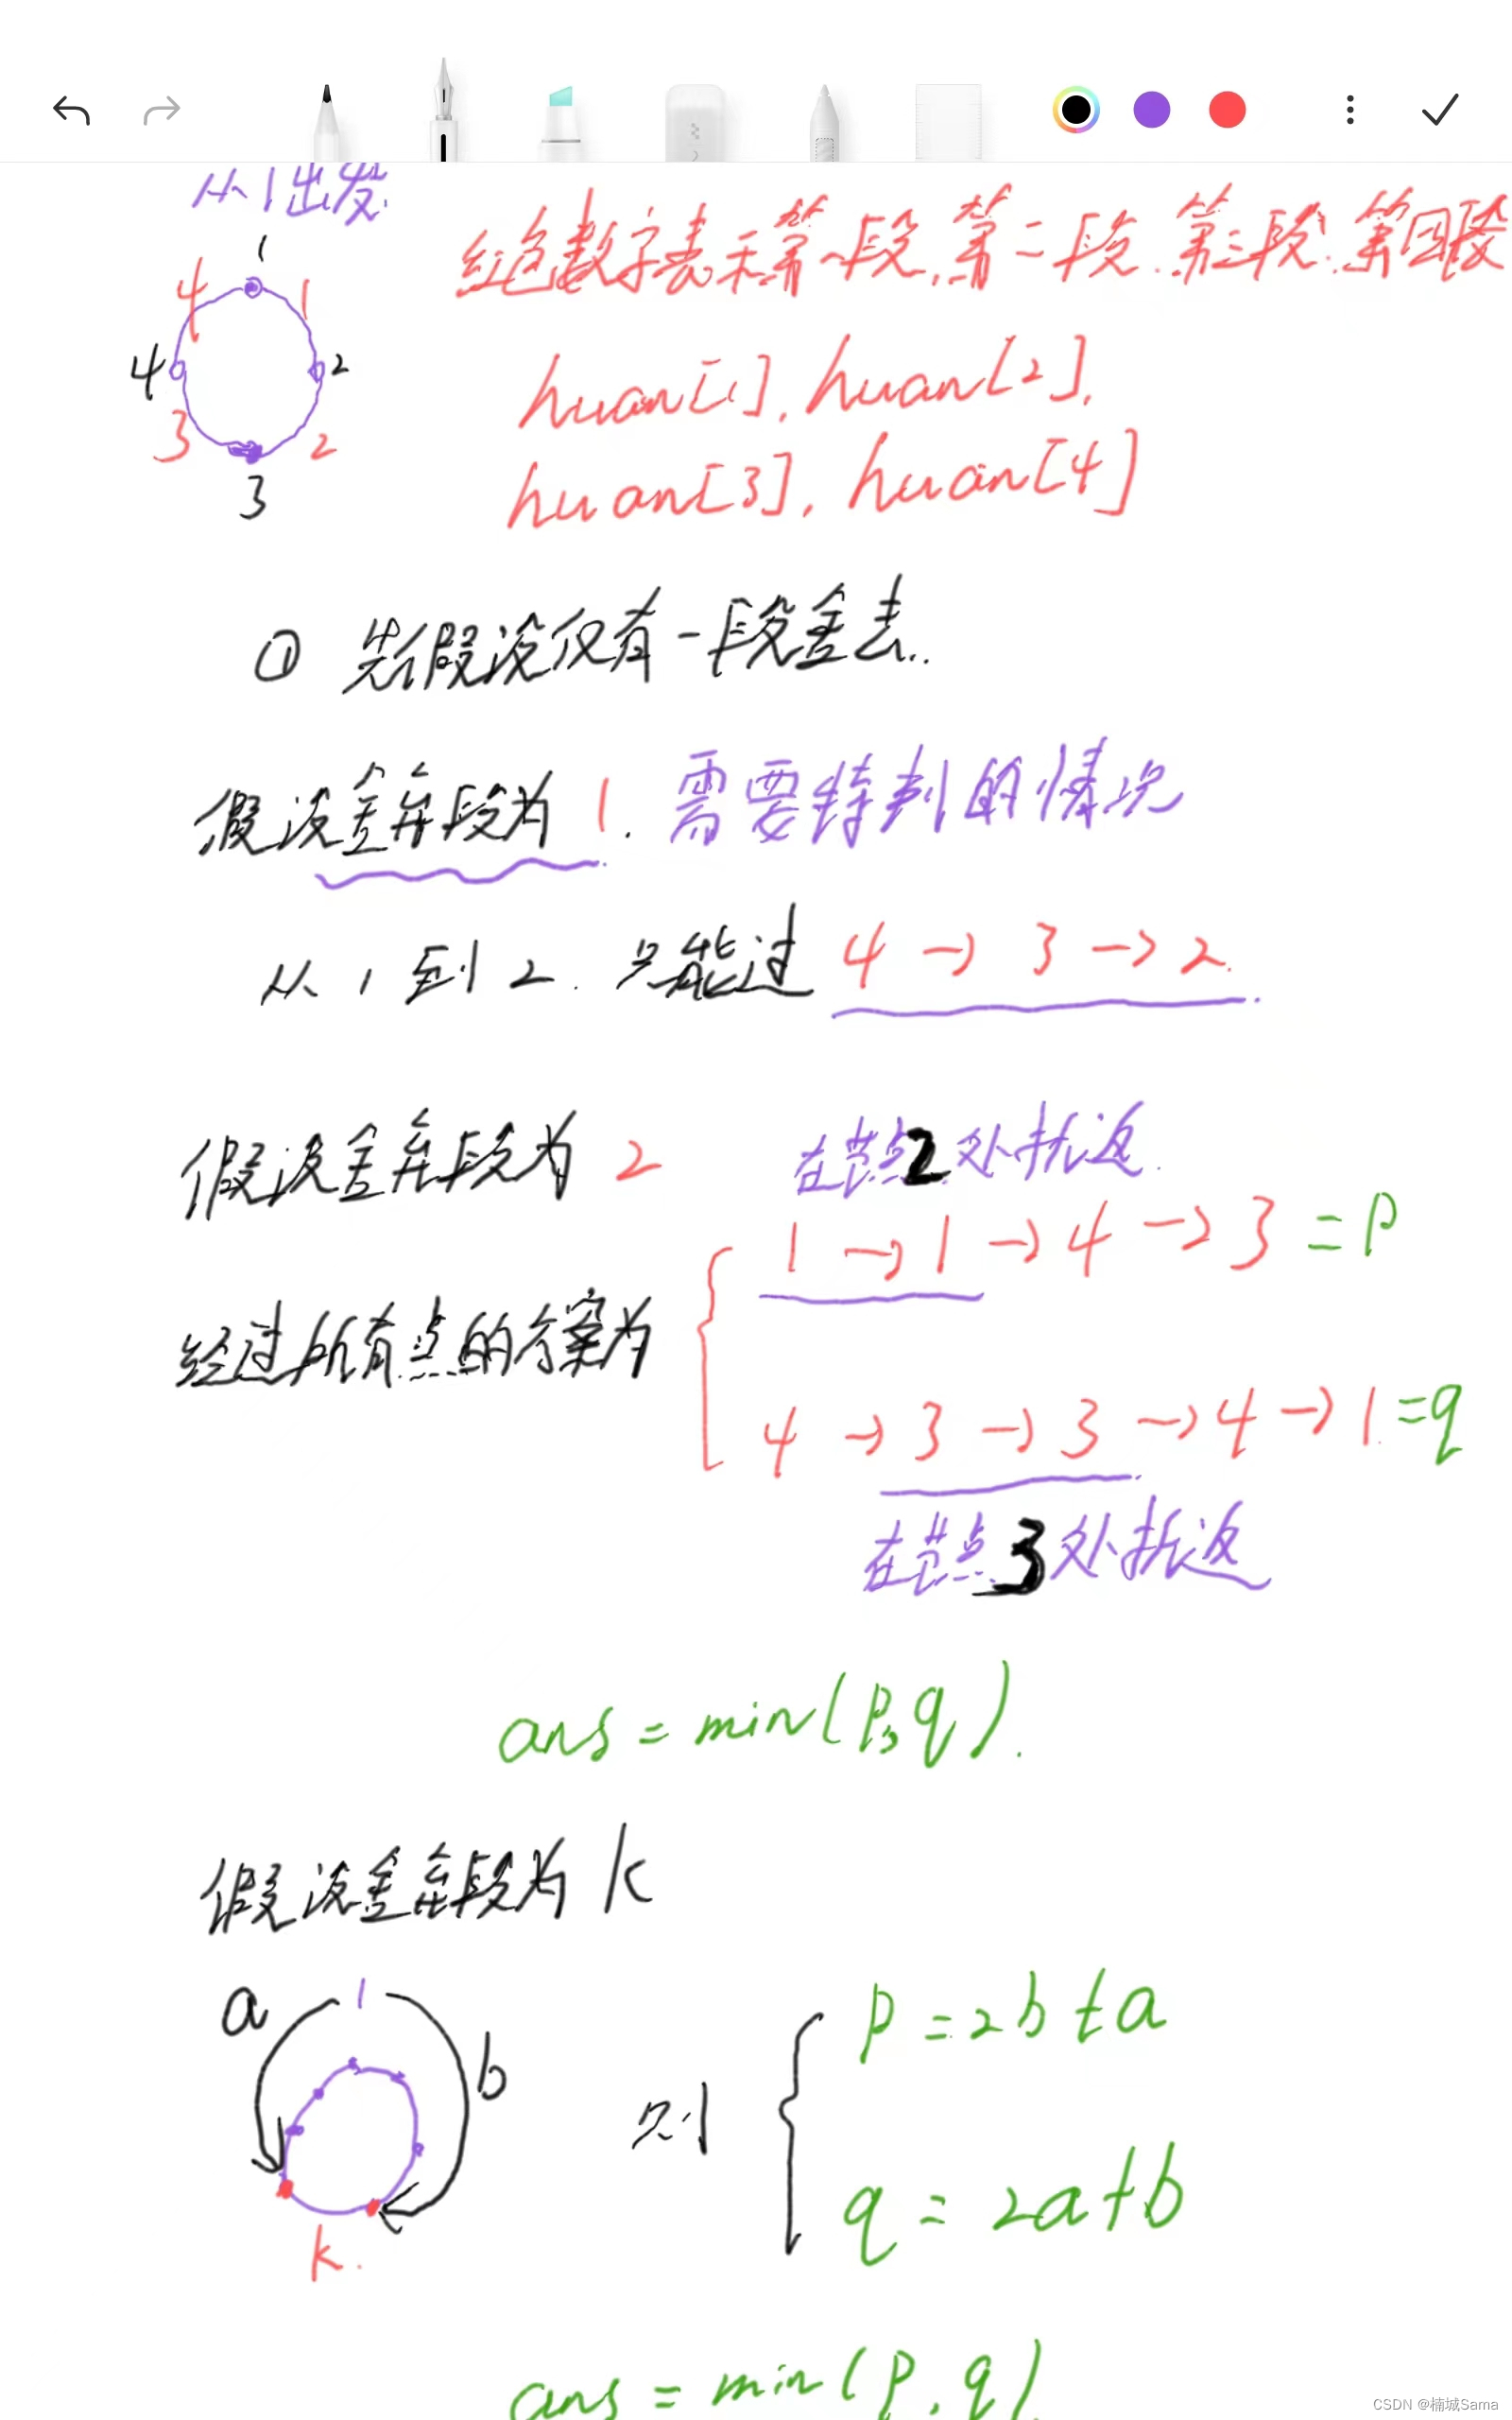 从1出发.
红色数字表示第一段,第二段.第三段.第四段
1
4 1
4 2
3 2
3
huan[1], huan[2],
huan[3], huan[4]
① 先假设仅有一段舍去..
假设舍弃段为 1. 需要特判的情况
从 1 到 2. 只能过 4 → 3 → 2.
假设舍弃段为 2 在节点2处折返.
1 → 1 → 4 → 3 = P
经过所有点的方案为
4 → 3 → 3 → 4 → 1. = q
在节点3处折返
ans = min(P,q).
假设舍弃段为 k
a 1 b
k.
则
P = 2b+a
q = 2a+b
ans = min(P,q)
CSDN @楠城Sama